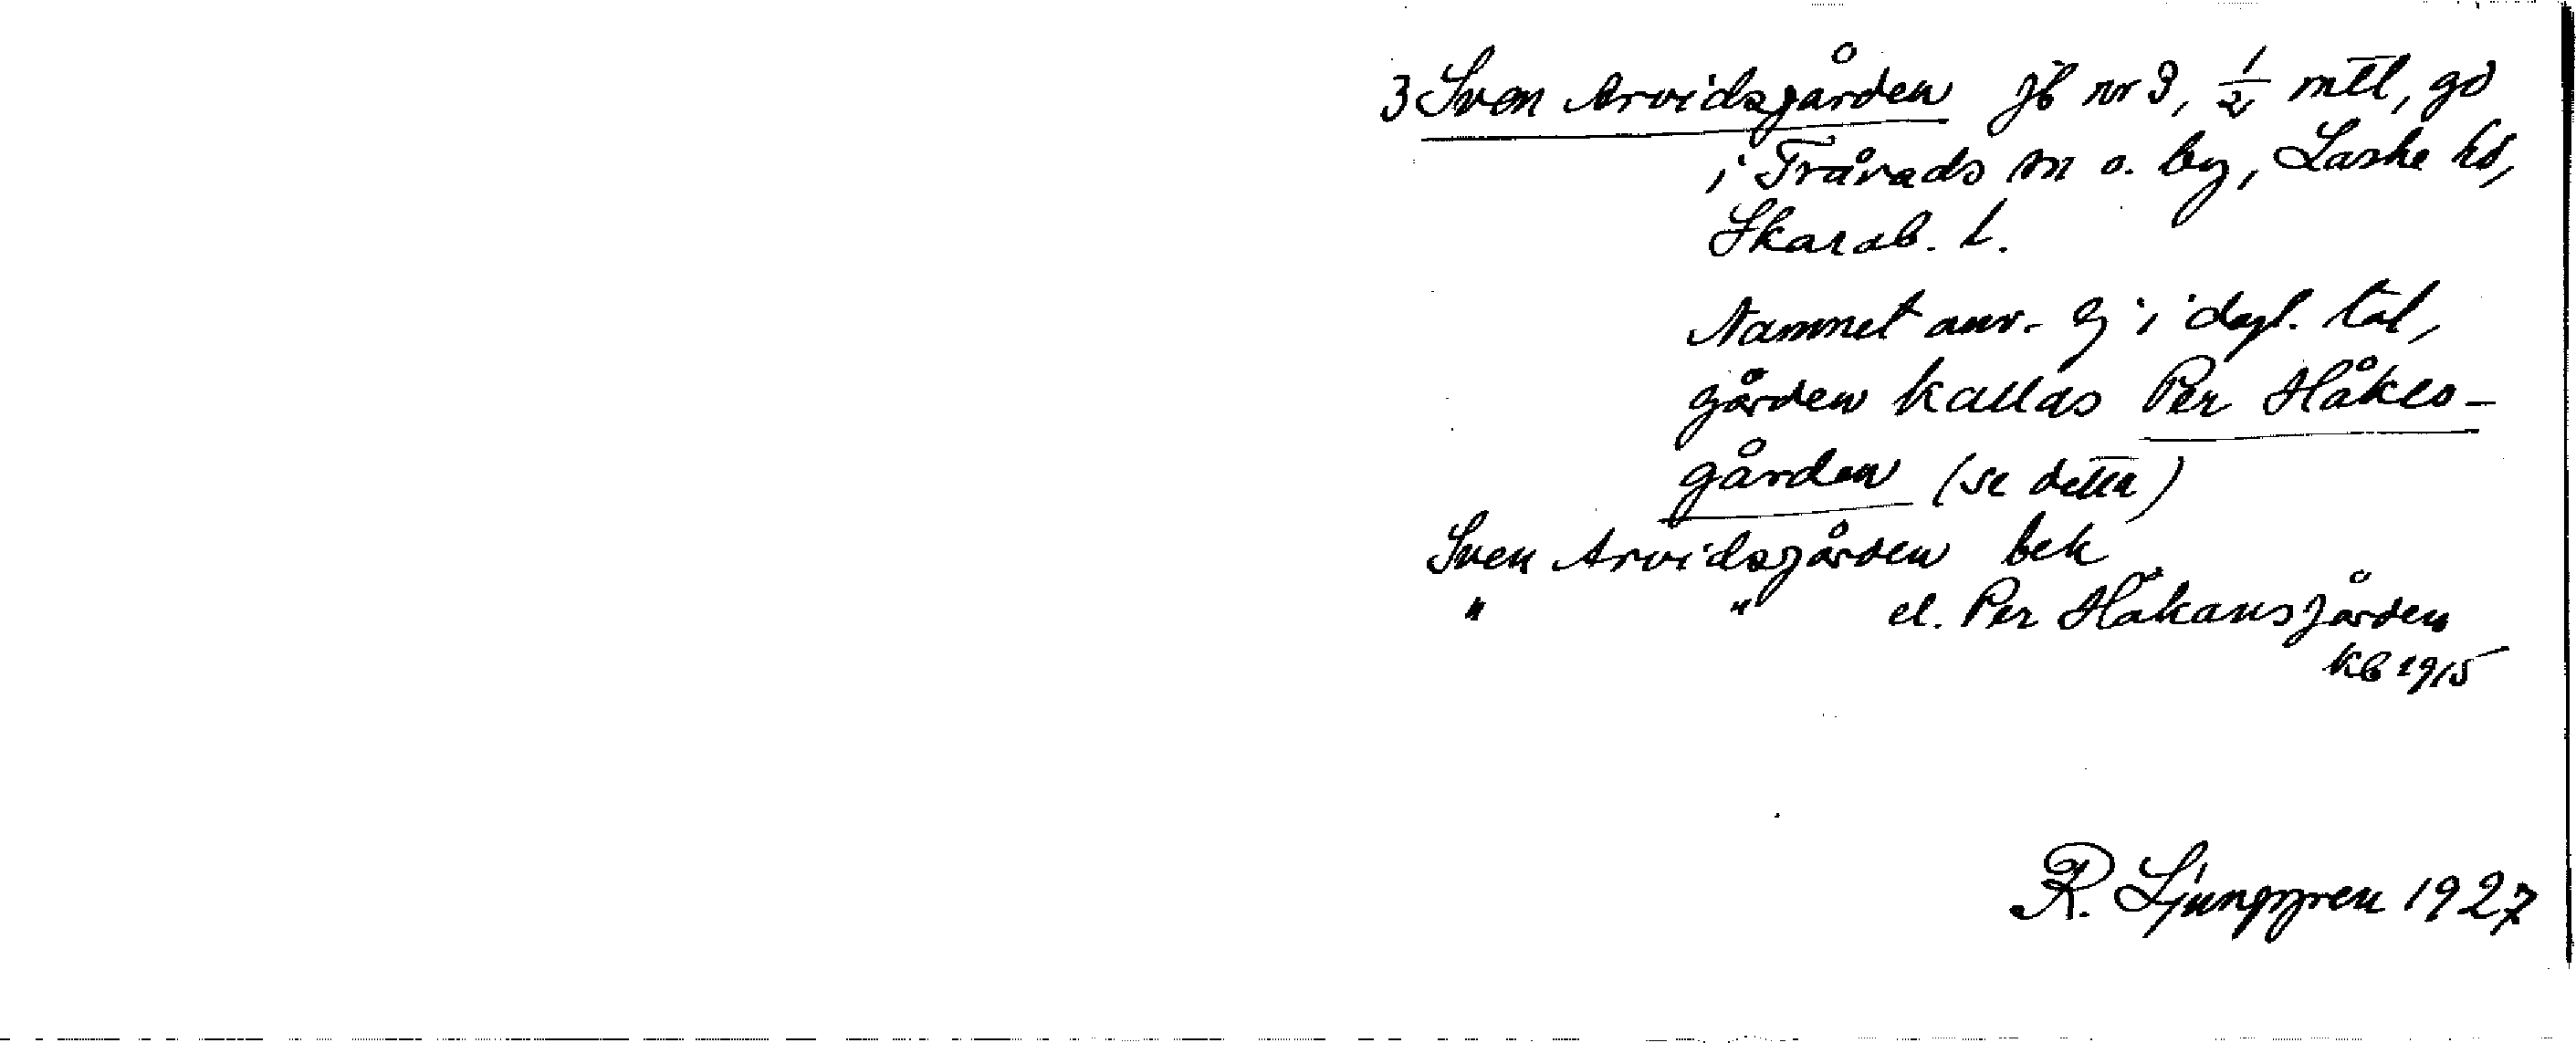 3 Sven Arvidsgården jb nr 9, 1/2 mtl, gd
i Trävads sn o. by, Laske hd,
Skarab. l.
Namnet anv. ej i dagl. tal,
gården kallas Per Håkes-
gården (se detta)
Sven Arvidsgården bek
" " el. Per Håkansgården
kb 1915
R. Ljunggren 1927